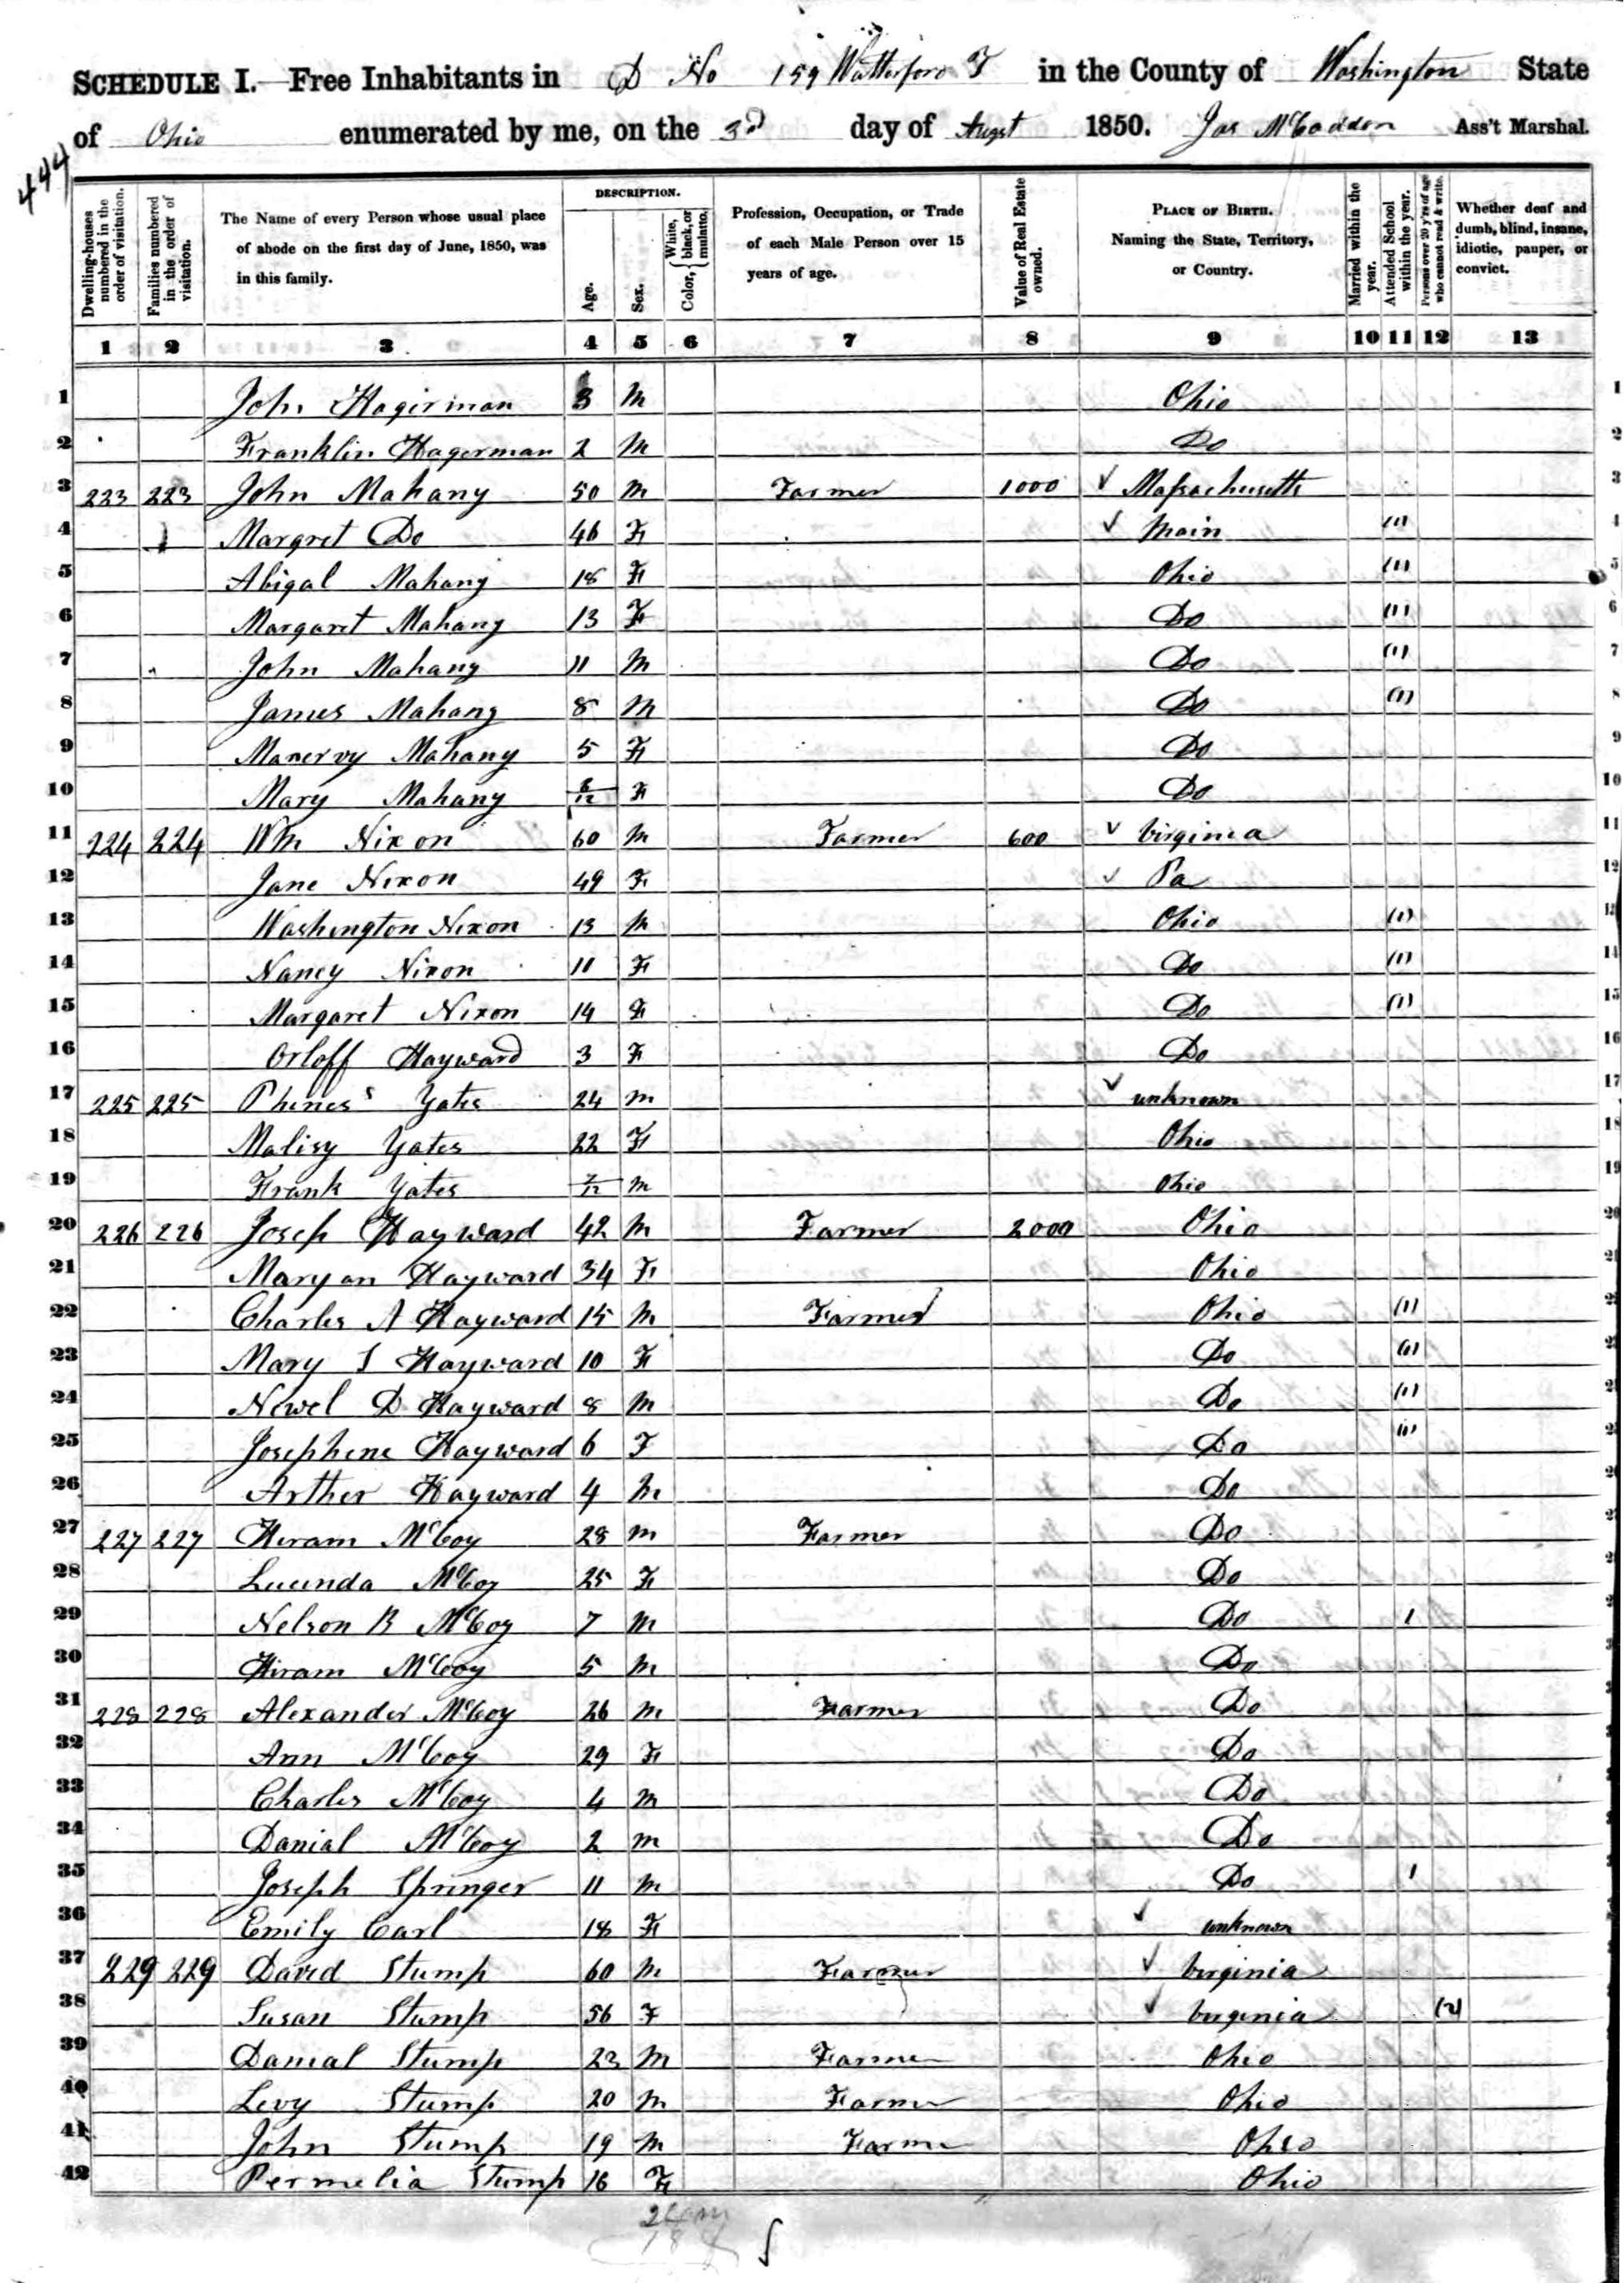 SCHEDULE I.—Free Inhabitants in D No 159 Watterford T in the County of Washington State
of Ohio enumerated by me, on the 3rd day of Augst 1850. Jas McCadden Ass't Marshal.
444
Dwelling-houses numbered in the order of visitation.
Families numbered in the order of visitation.
The Name of every Person whose usual place of abode on the first day of June, 1850, was in this family.
DESCRIPTION.
Age.
Sex.
Color, { White, black, or mulatto.
Profession, Occupation, or Trade of each Male Person over 15 years of age.
Value of Real Estate owned.
PLACE OF BIRTH. Naming the State, Territory, or Country.
Married within the year.
Attended School within the year.
Persons over 20 y'rs of age who cannot read & write.
Whether deaf and dumb, blind, insane, idiotic, pauper, or convict.
1 2 3 4 5 6 7 8 9 10 11 12 13
1 John Hagirman 3 M Ohio 1
2 Franklin Hagerman 2 M Do 2
3 223 223 John Mahany 50 M Farmer 1000 ✓ Massachusetts 3
4 Margret Do 46 F ✓ Main (1) 4
5 Abigal Mahany 18 F Ohio (1) 5
6 Margaret Mahany 13 F Do (1) 6
7 John Mahany 11 M Do (1) 7
8 James Mahany 8 M Do (1) 8
9 Manervy Mahany 5 F Do 9
10 Mary Mahany /12 F Do 10
11 224 224 Wm Nixon 60 M Farmer 600 ✓ Virginia 11
12 Jane Nixon 49 F ✓ Pa 12
13 Washington Nixon 13 M Ohio (1) 13
14 Nancy Nixon 11 F Do (1) 14
15 Margaret Nixon 14 F Do (1) 15
16 Orloff Hayward 3 F Do 16
17 225 225 Phines Yates 24 M ✓ unknown 17
18 Malisy Yates 22 F Ohio 18
19 Frank Yates 7/12 M Ohio 19
20 226 226 Josep Hayward 42 M Farmer 2000 Ohio
21 Maryan Hayward 34 F Ohio
22 Charles A Hayward 15 M Farmer Ohio (1)
23 Mary S Hayward 10 F Do (1)
24 Newel D Hayward 8 M Do (1)
25 Josephene Hayward 6 F Do (1)
26 Arther Hayward 4 M Do
27 227 227 Hiram McCoy 28 M Farmer Do
28 Lucinda McCoy 25 F Do
29 Nelson R McCoy 7 M Do 1
30 Hiram McCoy 5 M Do
31 228 228 Alexander McCoy 26 M Farmer Do
32 Ann McCoy 29 F Do
33 Charles McCoy 4 M Do
34 Danial McCoy 2 M Do
35 Joseph Springer 11 M Do 1
36 Emily Carl 18 F ✓ unknown
37 229 229 David Stump 60 M Farmer ✓ Virginia
38 Susan Stump 56 F ✓ Virginia (2)
39 Danial Stump 23 M Farmer Ohio
40 Levy Stump 20 M Farmer Ohio
41 John Stump 19 M Farmer Ohio
42 Permelia Stump 16 F Ohio